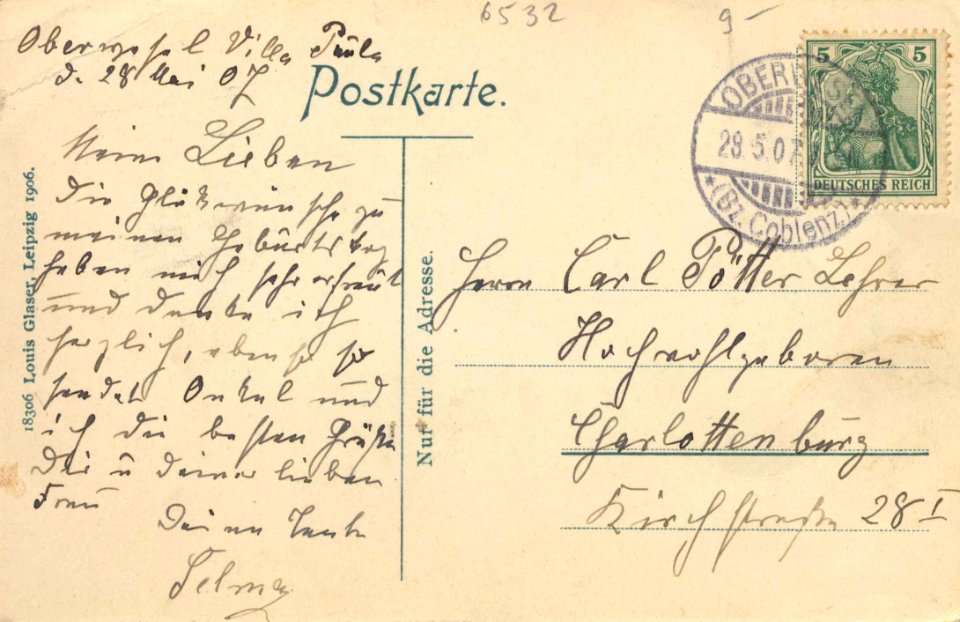 6532
9-
Oberwesel Villa Paula
d. 28 Mai 07
Postkarte.
5 5
DEUTSCHES REICH
OBERWESEL
28.5.07
(Bz. Coblenz)
Meine Lieben
Die Glükwünsche zu
meinen Gebürtstag
haben mich sehr erfreut
und danke ich
herzlich, ebenso
sendet Onkel und
ich die besten Grüße
Dir u deiner lieben
Frau
Deine Tante
Selma
18306 Louis Glaser, Leipzig 1906.
Nur für die Adresse.
Herrn Carl Pötter Lehrer
Hochwohlgeboren
Charlottenburg
Kirchstraße 28 I